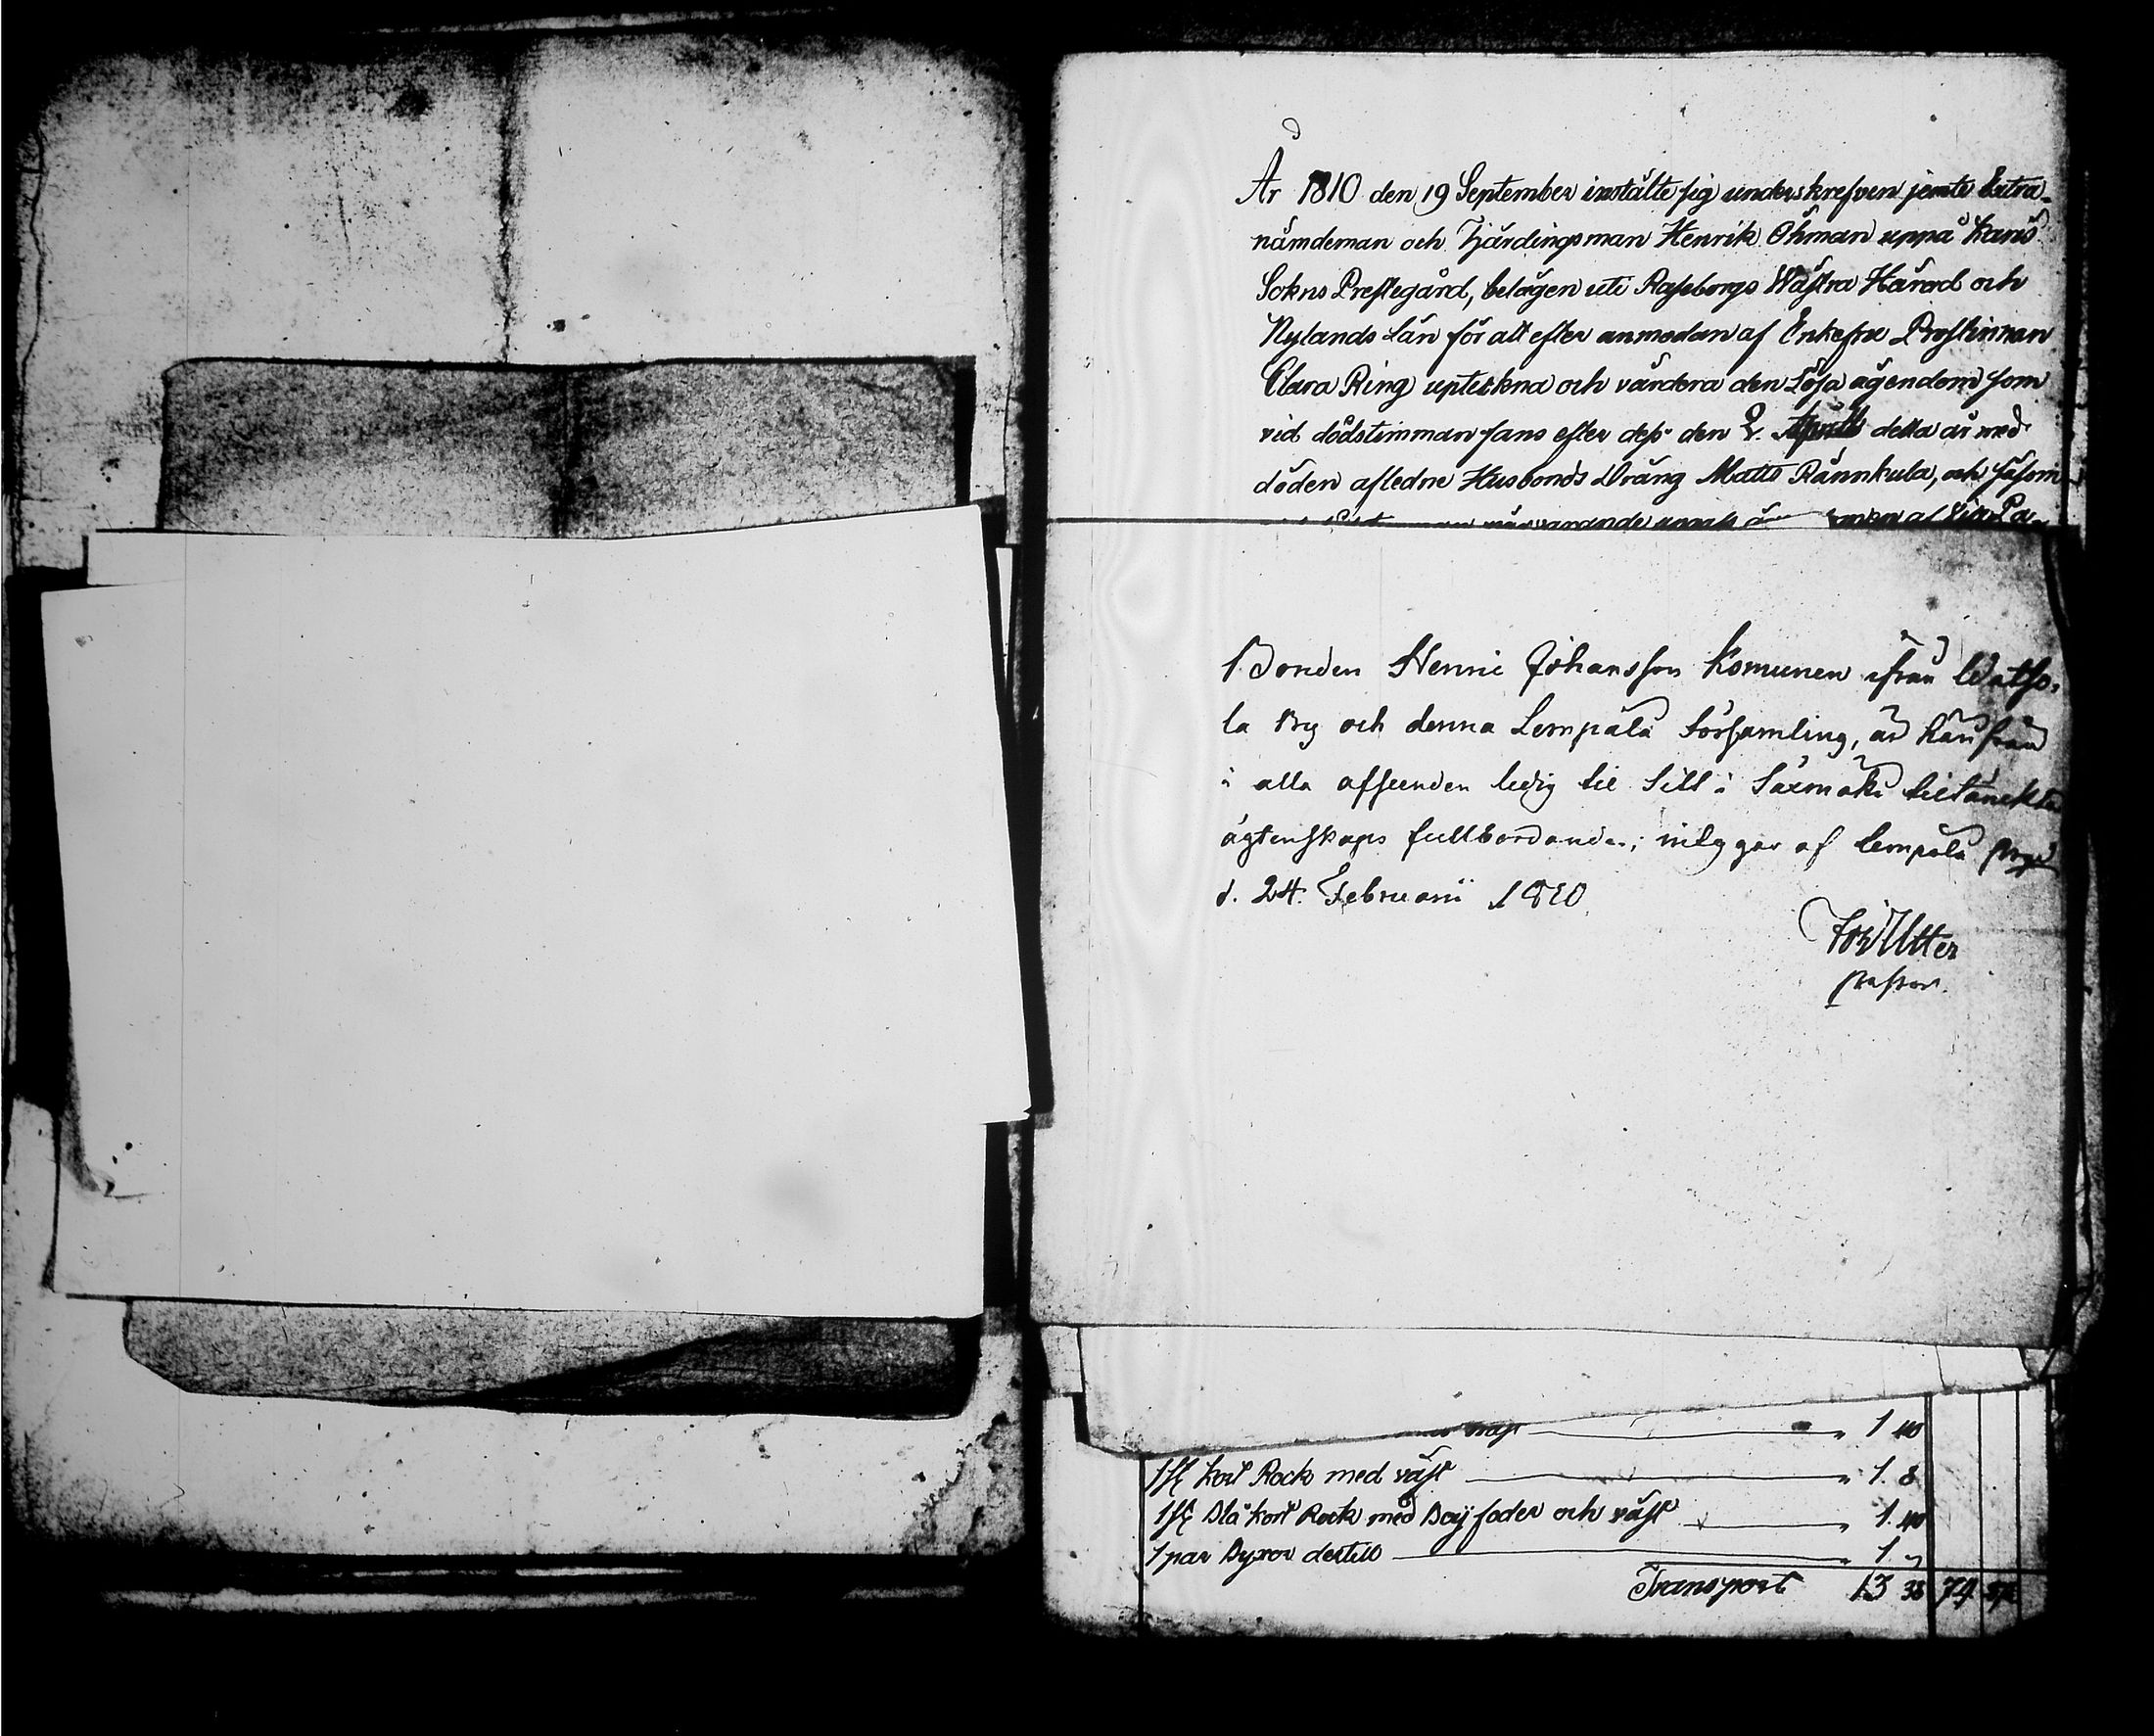 År 1810 den 19 September instälte sig underskrefven jemte Extra
nämdeman och Fjärdingsman Henrik Öhman uppå Karis
Sokns Prestegård, belägen uti Raseborgs Wästra Härad och
Nylands Län för att efter anmodan af Enkefru Prostinnan
Clara Ring upteckna och värdera den Lösa ägendom som
vid dödstimman fans efter dess den 2. Aprill detta år med
döden afledne Husbonds Dräng Matts Rännkula, och såsom
närvarande
Bonden Henric Johansson Komunen ifrån Watso-
la By och denna Lempälä Församling, är härifrån
i alla afseenden ledig til Sitt i Saxmäki tiltänckta
ägtenskaps fullbordande; intygar af Lempälä
d. 24. Februarii 1810.
Utter
pastor.
1 40
1 st kort Rock med väst " 1. 8
1 st Blå kort Rock med Boy foder och väst " 1. 40
1 par Byxor dertill " 1 "
Transport 13 38 74